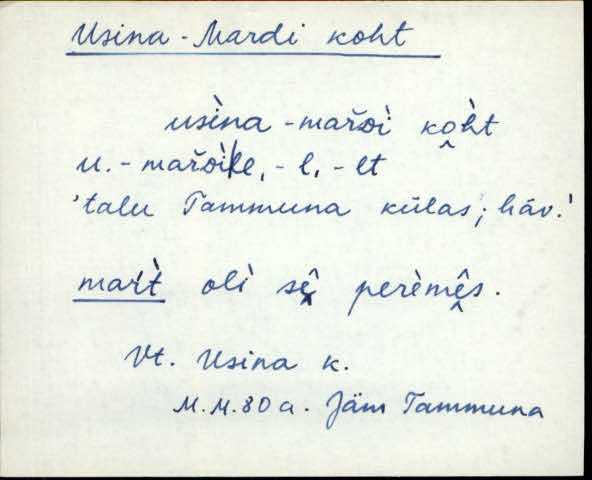 Usina-Mardi koht
usìna-mařdì ko̭h̀t
u.-mařdìle, -l, -lt
'talu Tammuna külas; häv.'
mar̀t̀ olì sê̬ perèmḙ̂s.
Vt. Usina k.
M.M. 80 a. Jäm Tammuna